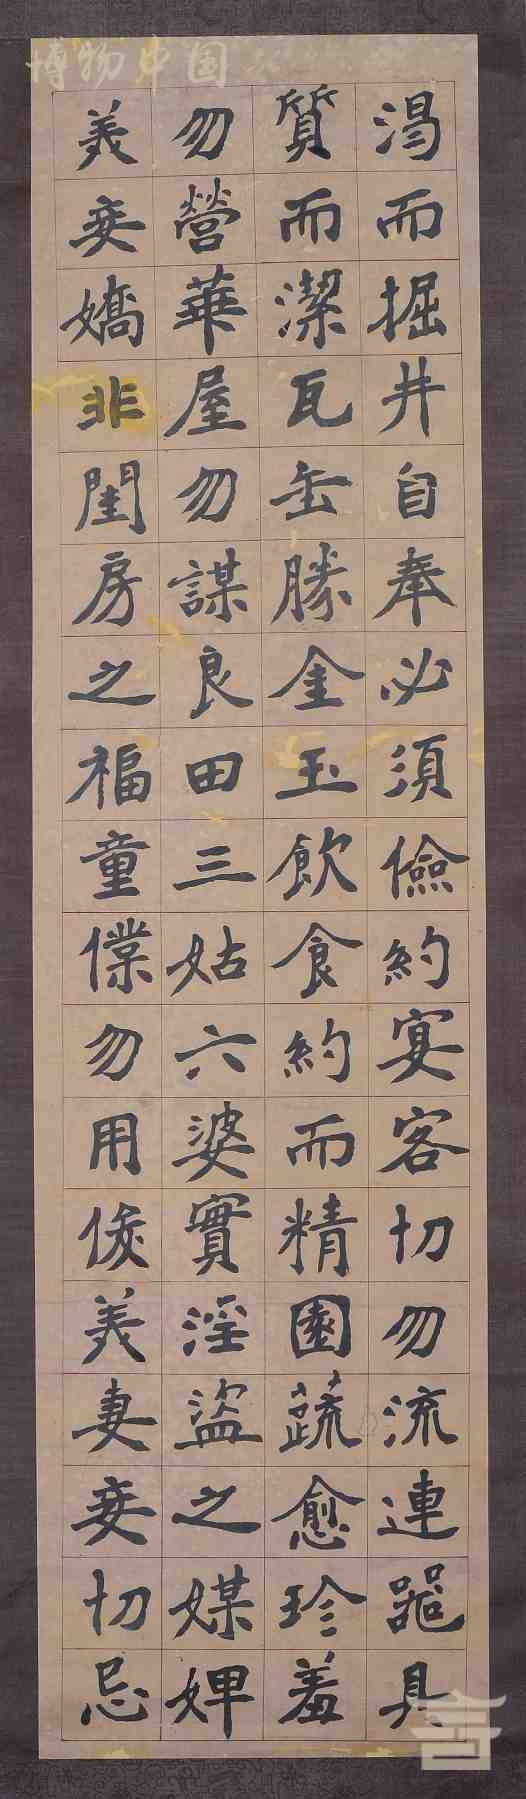 博物中国
渴而掘井自奉必須儉約宴客切勿流連器具
質而潔瓦缶勝金玉飲食約而精園蔬愈珍羞
勿營華屋勿謀良田三姑六婆實淫盜之媒婢
美妾嬌非閨房之福童僕勿用俊美妻妾切忌